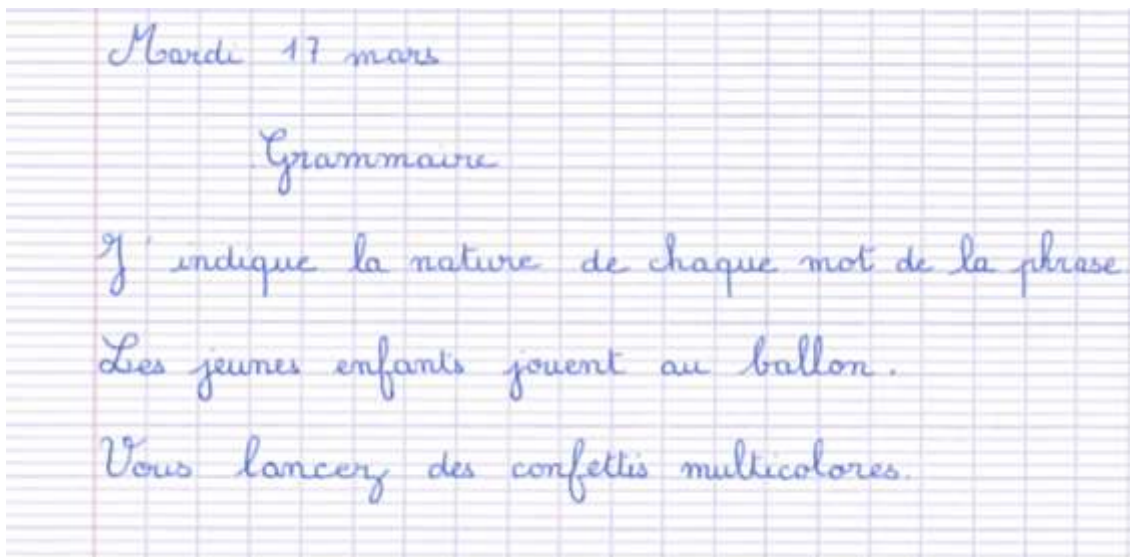 Mardi 17 mars
Grammaire
J'indique la nature de chaque mot de la phrase
Les jeunes enfants jouent au ballon.
Vous lancez des confettis multicolores.